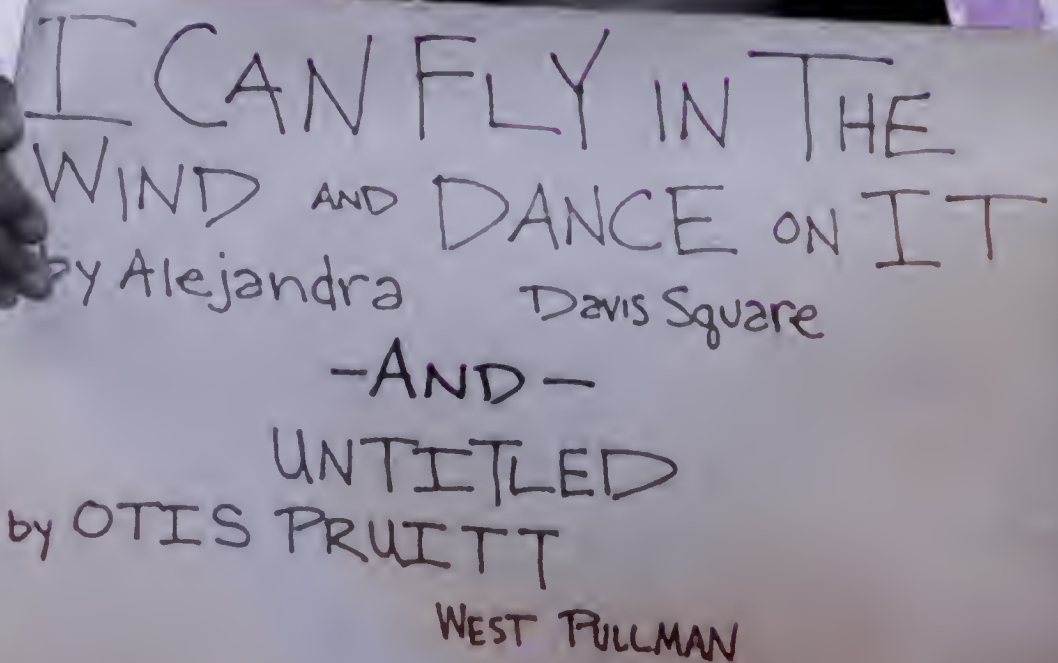 I CAN FLY IN THE
WIND AND DANCE ON IT
by Alejandra Davis Square
-AND-
UNTITLED
by OTIS PRUITT
WEST PULLMAN